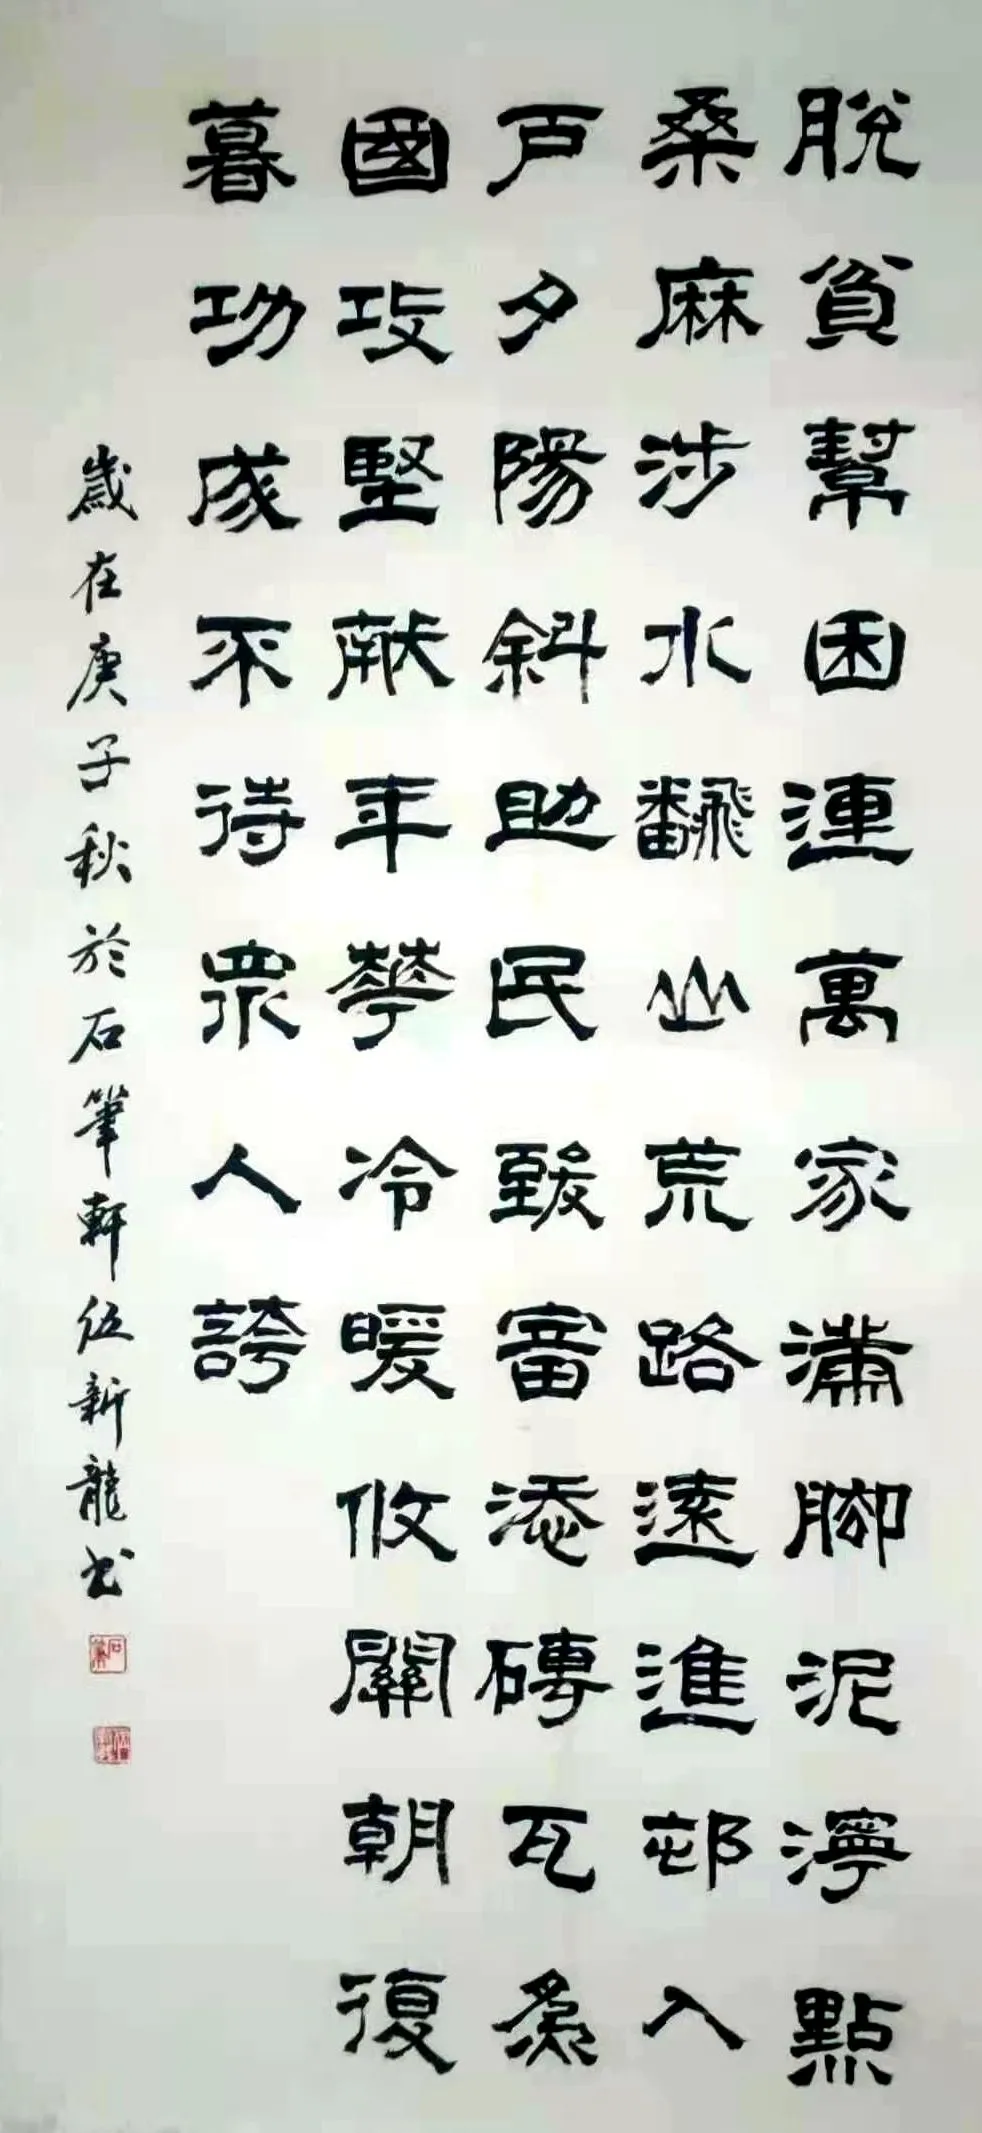 脫貧幫困連萬家滿脚泥濘點
桑麻涉水飜山荒路遠進邨入
戶夕陽斜助民致富添磚瓦為
國攻堅献年華冷暖攸關朝復
暮功成不待眾人誇
歲在庚子秋於石筆軒伍新龍书
石筆